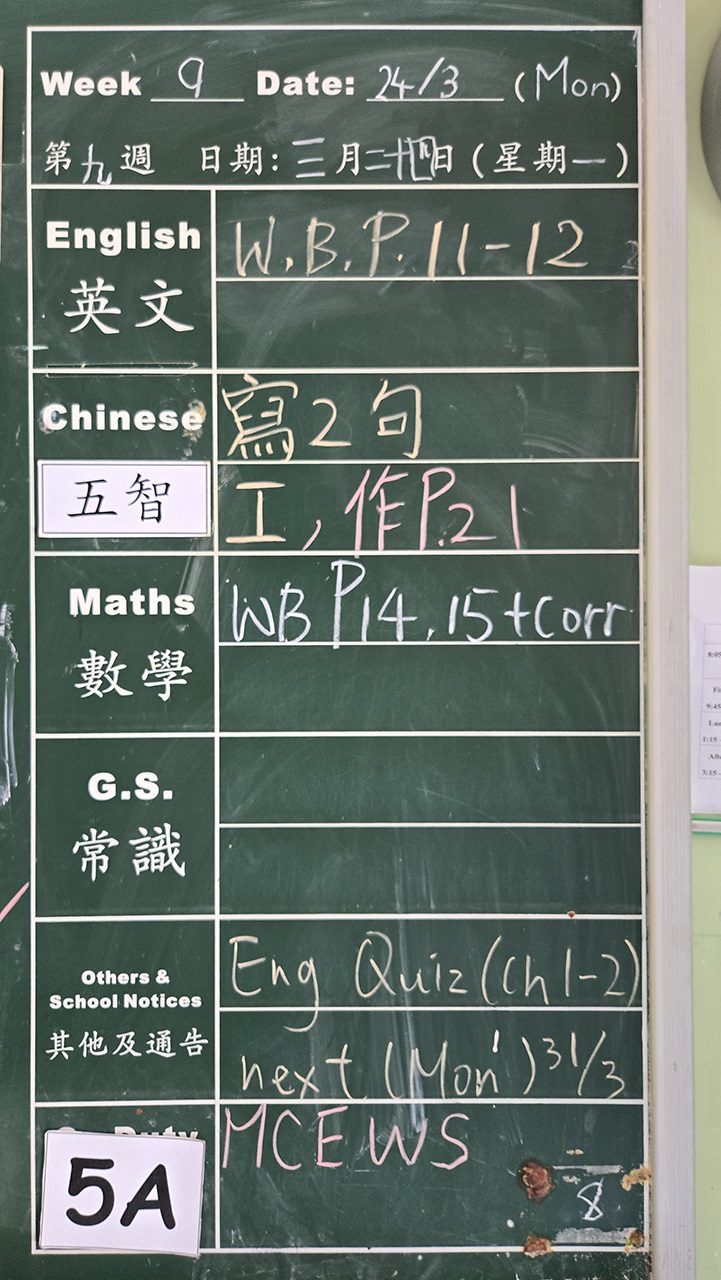 Week 9 Date: 24/3 (Mon)
第九週 日期:三月二十四日(星期一)
English W.B.P. 11-12
英文
Chinese 寫2句
五智 工,作P.21
Maths WB P14,15+corr
數學
G.S.
常識
Others & Eng Quiz (Ch 1-2)
School Notices
其他及通告 next (Mon) 31/3
Duty MCE WS
5A 8